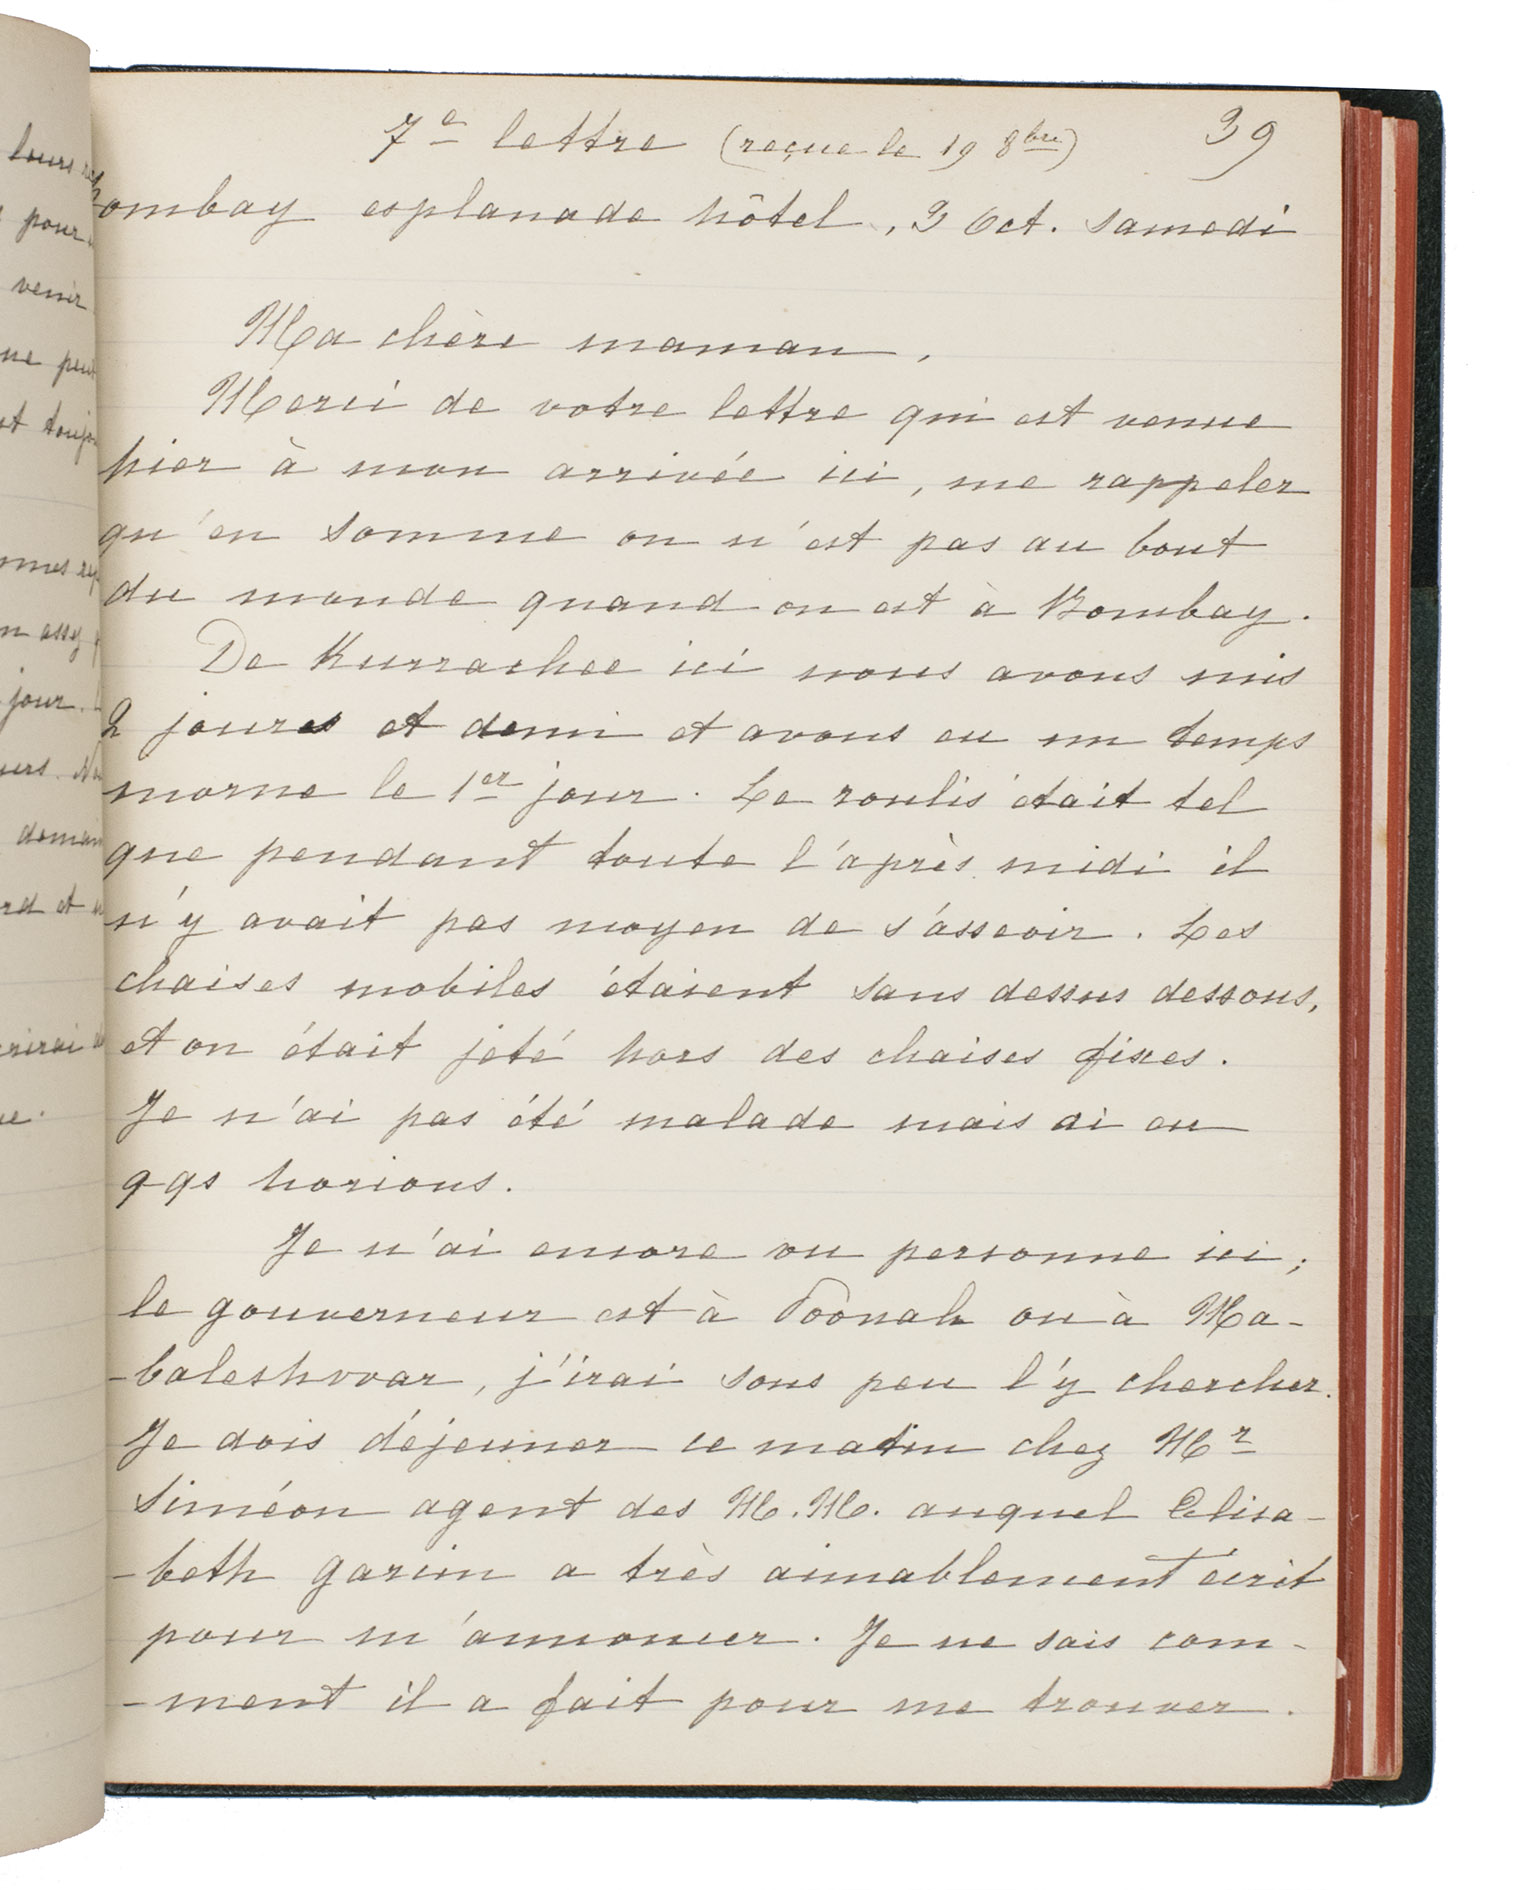 leurs
pour
venir
ne peut
et toujo
mes
n assez
jour.
demain
rd et
rirai
ue.
7e lettre (reçue le 19 8bre) 39
Bombay esplanade hôtel, 3 Oct. samedi
Ma chère maman,
Merci de votre lettre qui est venue
hier à mon arrivée ici, me rappeler
qu'en somme on n'est pas au bout
du monde quand on est à Bombay.
De Kurrachee ici nous avons mis
2 jours et demi et avons eu un temps
morne le 1er jour. Le roulis était tel
que pendant toute l'après midi il
n'y avait pas moyen de s'asseoir. Les
chaises mobiles étaient sans dessus dessous,
et on était jeté hors des chaises fixes.
Je n'ai pas été malade mais ai eu
qqs horions.
Je n'ai encore vu personne ici;
le gouverneur est à Poonah ou à Ma-
-baleshwar, j'irai sous peu l'y chercher.
Je dois déjeuner ce matin chez Mr
Siméon agent des M.M. auquel Elisa-
-beth garcin a très aimablement écrit
pour m'annoncer. Je ne sais com-
-ment il a fait pour me trouver.